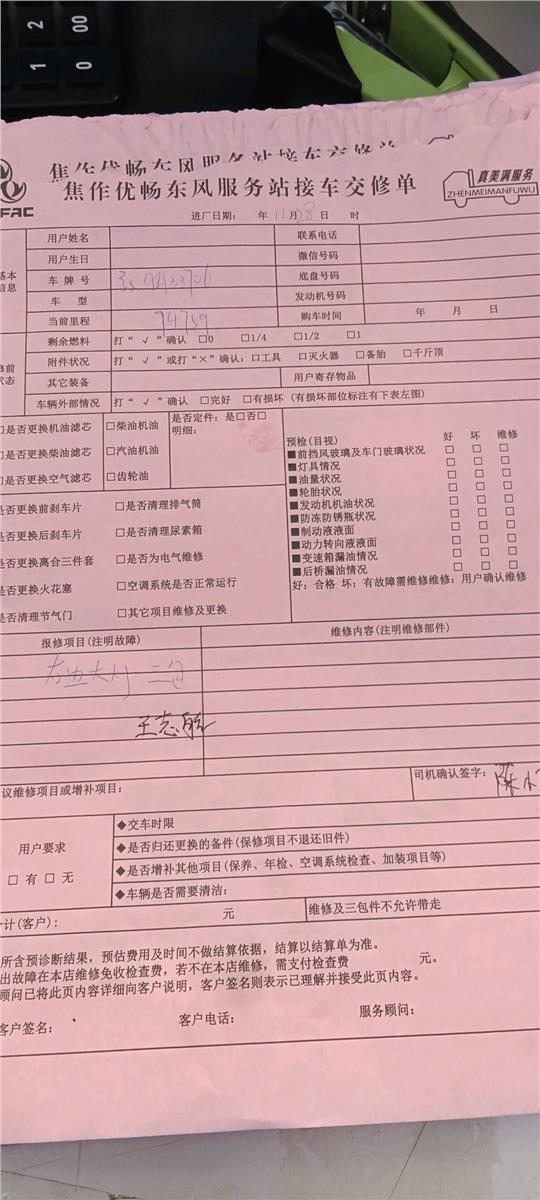 2 00
1 0
焦作优畅东风服务站接车交修单
焦作优畅东风服务站接车交修单
真美满服务
ZHENMEIMANFUWU
FAC
进厂日期: 年 11 月 28 日 时
基本信息
用户姓名 联系电话
用户生日 微信号码
车牌号 底盘号码
车型 发动机号码
当前里程 74759 购车时间 年 月 日
修前状态
剩余燃料 打“√”确认 □0 □1/4 □1/2 □1
附件状况 打“√”或打“×”确认: □工具 □灭火器 □备胎 □千斤顶
其它装备 用户寄存物品
车辆外部情况 打“√”确认 □完好 □有损坏 (有损坏部位标注有下表左图)
□是否更换机油滤芯 □柴油机油 是否定件: 是□否□
明细:
□是否更换柴油滤芯 □汽油机油
□是否更换空气滤芯 □齿轮油
预检(目视) 好 坏 维修
■前挡风玻璃及车门玻璃状况 □ □ □
■灯具情况 □ □ □
■油量状况 □ □ □
■轮胎状况 □ □ □
■发动机机油状况 □ □ □
■防冻防锈瓶状况 □ □ □
■制动液液面 □ □ □
■动力转向液液面 □ □ □
■变速箱漏油情况 □ □ □
■后桥漏油情况 □ □ □
好: 合格 坏: 有故障需维修维修: 用户确认维修
是否更换前刹车片 □是否清理排气筒
是否更换后刹车片 □是否清理尿素箱
是否更换离合三件套 □是否为电气维修
是否更换火花塞 □空调系统是否正常运行
是否清理节气门 □其它项目维修及更换
报修项目(注明故障) 维修内容(注明维修部件)
大灯 三包
王志
议维修项目或增补项目:
司机确认签字: 陈小
用户要求
□ 有 □ 无
◆交车时限
◆是否归还更换的备件(保修项目不退还旧件)
◆是否增补其他项目(保养、年检、空调系统检查、加装项目等)
◆车辆是否需要清洁:
计(客户): 元 维修及三包件不允许带走
所含预诊断结果，预估费用及时间不做结算依据，结算以结算单为准。
出故障在本店维修免收检查费，若不在本店维修，需支付检查费 元。
顾问已将此页内容详细向客户说明，客户签名则表示已理解并接受此页内容。
客户签名: 客户电话: 服务顾问: